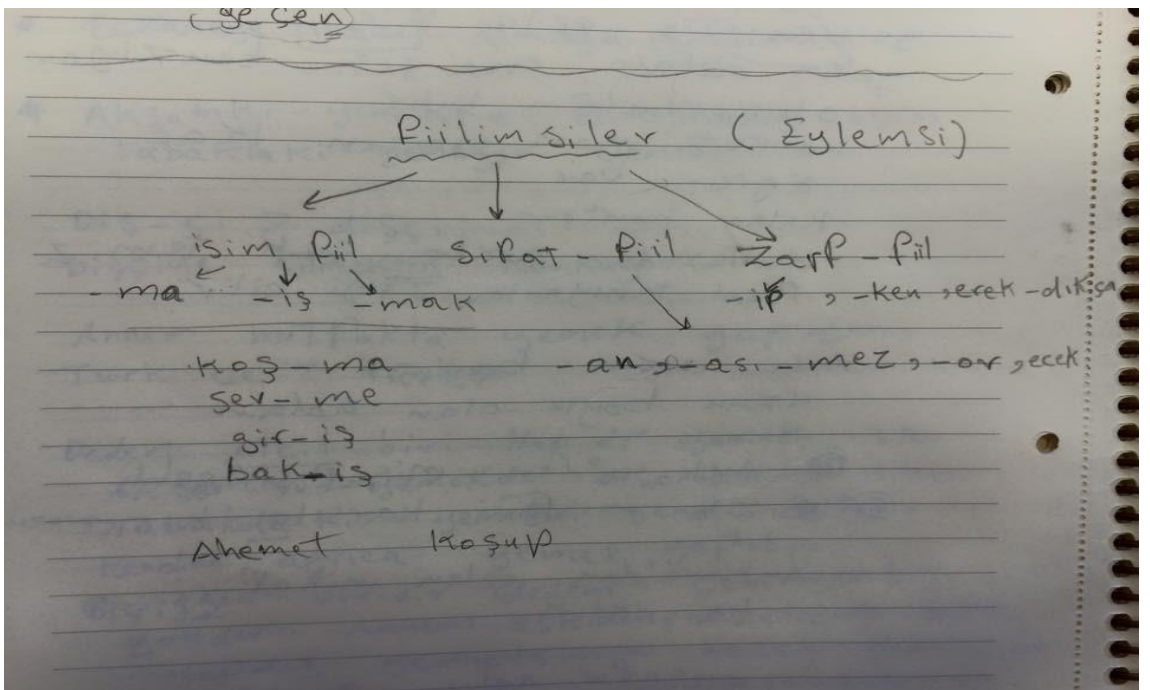 (geçen)
fiilimsiler (Eylemsi)
isim fiil sıfat-fiil Zarf-fiil
-ma -iş -mak -ip, -ken, erek -dıkışça
koş-ma -an, -ası -mez, -ar, ecek
sev-me
gir-iş
bak-iş
Ahemet koşup